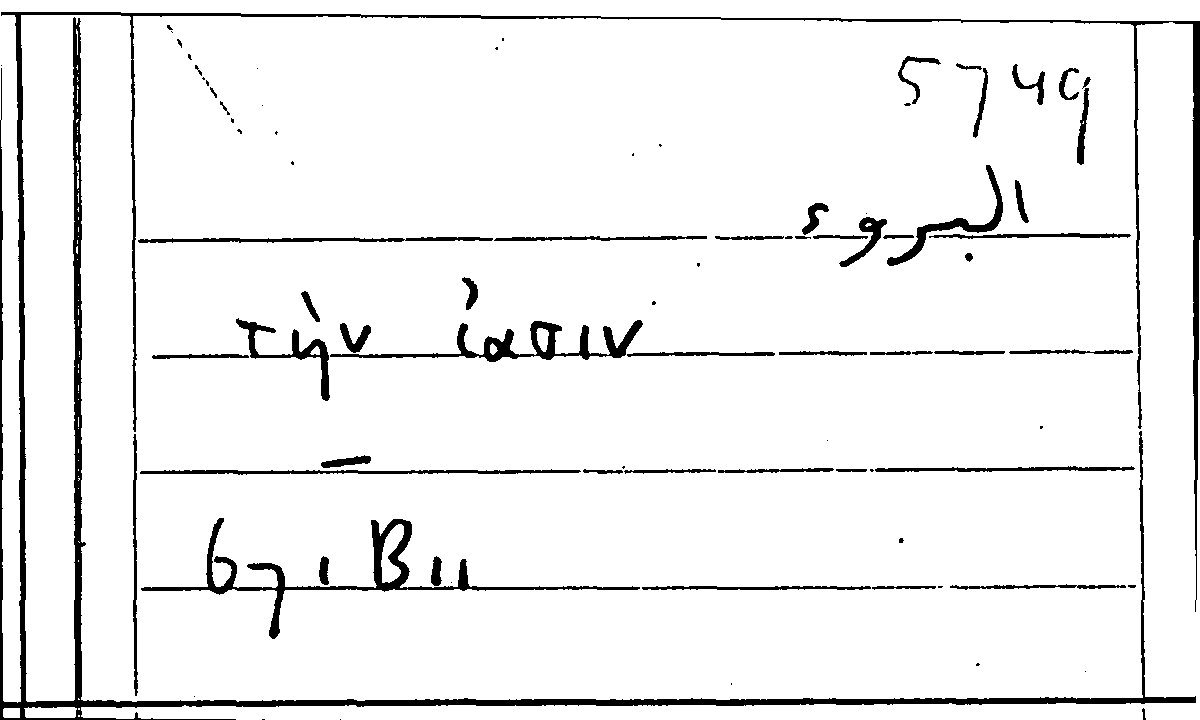 5749
البروء
τὴν ἴασιν
–
671 B 11